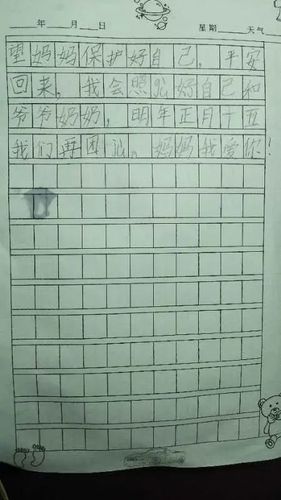 年 月 日 星期 天气
望妈妈保护好自己，平安
回来，我会照顾好自己和
爷爷奶奶，明年正月十五
我们再团圆。妈妈我爱你！